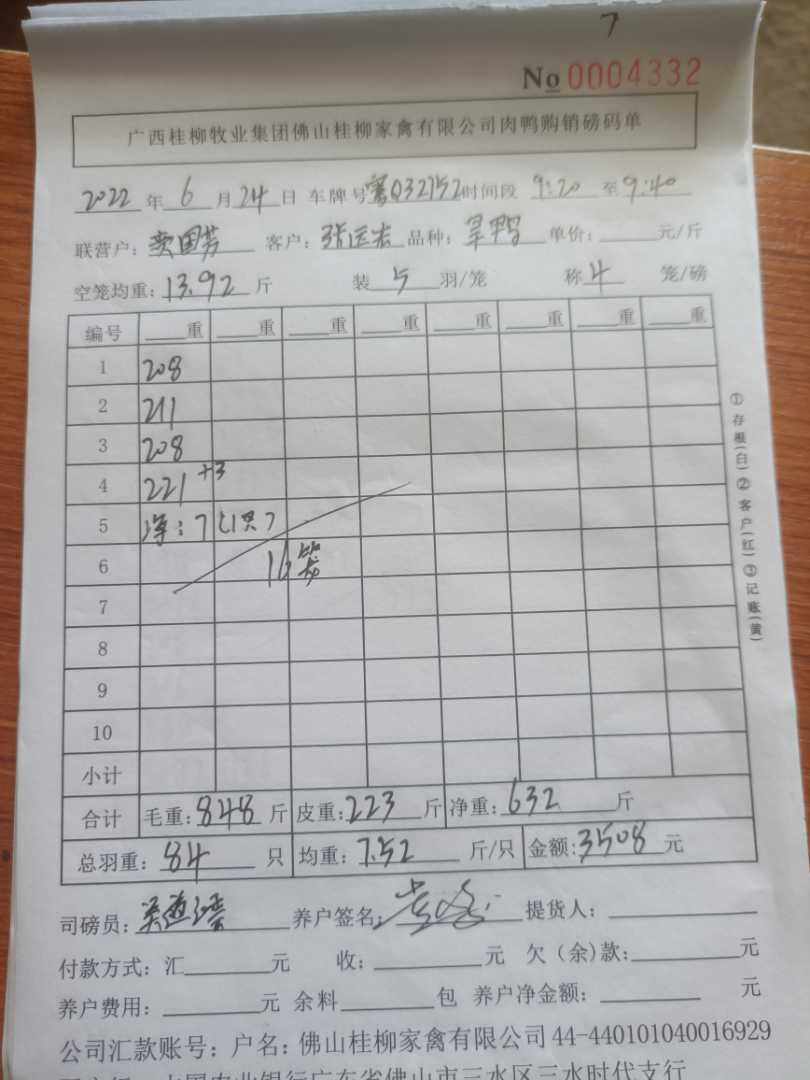 7
No 0004332
广西桂柳牧业集团佛山桂柳家禽有限公司肉鸭购销磅码单
2022年6月24日 车牌号 Q32152 时间段 9:20 至 9:40
联营户: 国芳 客户: 张运宏 品种: 旱鸭 单价: 元/斤
空笼均重: 13.92 斤 装 5 羽/笼 称 4 笼/磅
编号 重 重 重 重 重 重 重 重
1 208
2 211
3 208
4 221 +3
5 净: 7 (1只)
6 16笼
7
8
9
10
小计
合计 毛重: 848 斤 皮重: 223 斤 净重: 632 斤
总羽重: 84 只 均重: 7.52 斤/只 金额: 3508 元
司磅员: 养户签名: 提货人:
付款方式: 汇 元 收: 元 欠(余)款: 元
养户费用: 元 余料 包 养户净金额: 元
公司汇款账号: 户名: 佛山桂柳家禽有限公司 44-440101040016929
中国农业银行广东省佛山市三水区三水时代支行
①存根(白)②客户(红)③记账(黄)